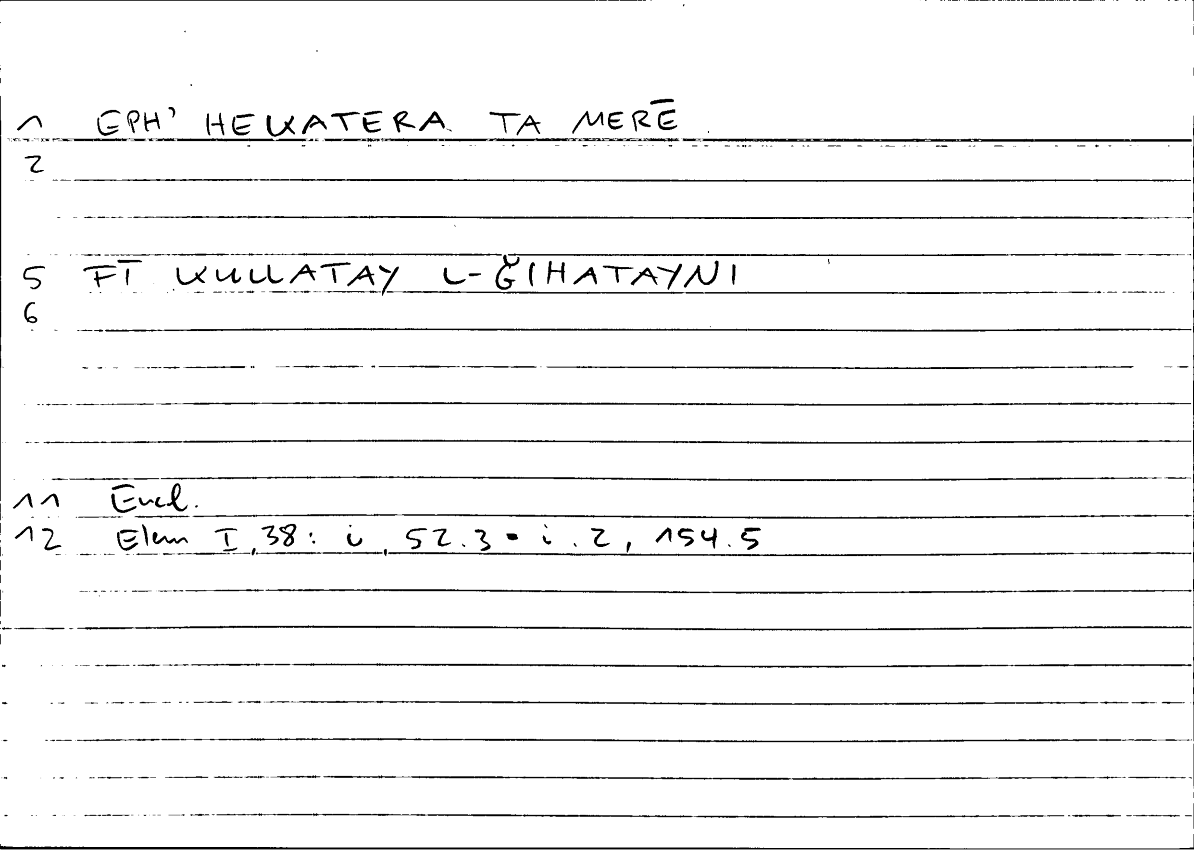 1 EPH' HEKATERA TA MERĒ
2
5 FĪ KULLATAY L-ǦIHATAYNI
6
11 Eucl.
12 Elem I, 38: i, 52.3 = i.2, 154.5